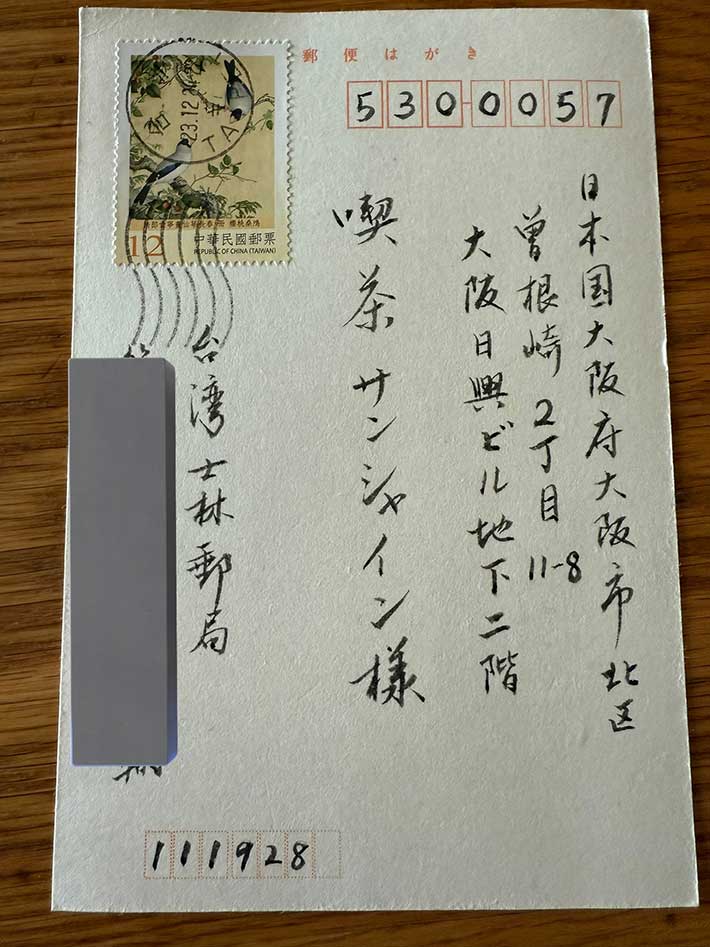 郵便はがき
530-0057
日本国大阪府大阪市北区
曽根崎2丁目11-8
大阪日興ビル地下二階
喫茶サンシャイン様
台湾士林郵局
111928
12
中華民國郵票
REPUBLIC OF CHINA (TAIWAN)
23.12
TAIP